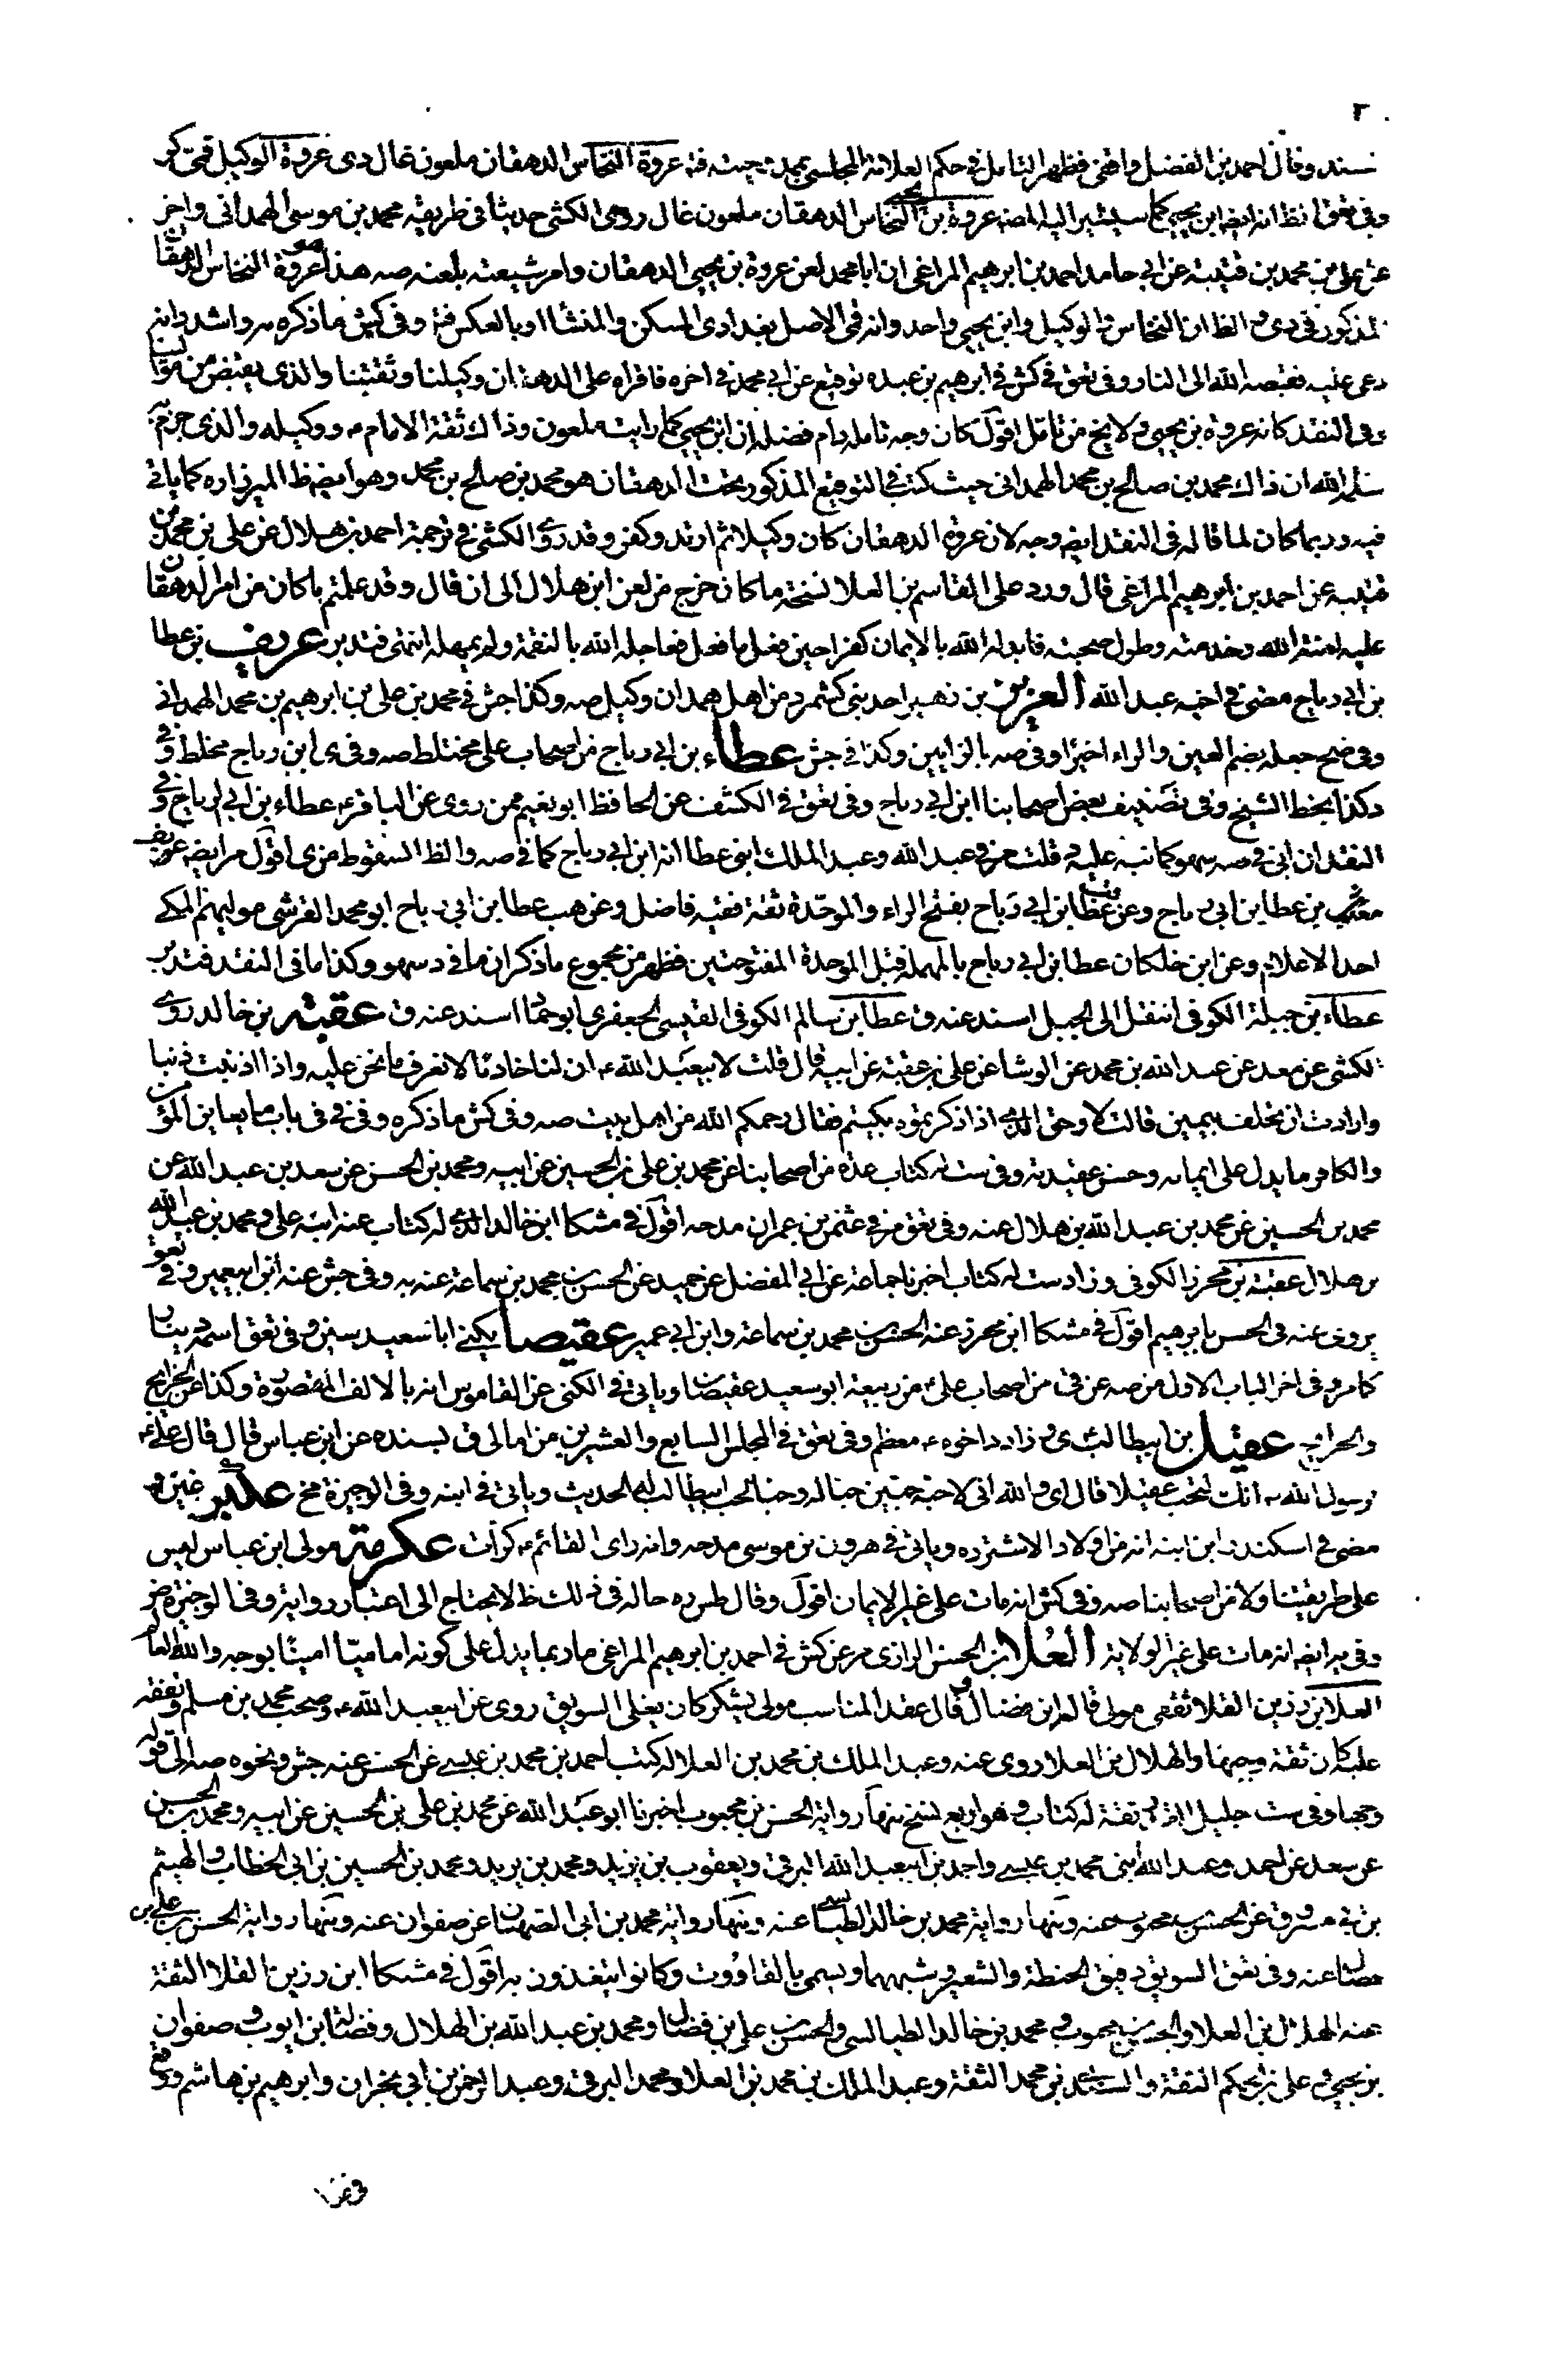 سنده وقال احمد بن الفضل واقفى فظهر التامل فى حكم العلامة المجلسى بمدحيته فتد عروة النخاس الدهقان ملعون غال دى عروة الوكيل قمى كر
وفى تعق الظ انه ايضه ابن يحيى كما سيشير اليه المصه عروة بن يحيى النخاس الدهقان ملعون غال روى الكشى حديثا فى طريقه محمد بن موسى الهمدانى واخر
عن على بن محمد بن قتيبة عن ابى حامد احمد بن ابرهيم المراغى ان ابا محمد لعن عروة بن يحيى الدهقان وامر شيعته بلعنه صه هذا هو عروة النخاس الدهقان
المذكور فى دى و الظ ان النخاس والوكيل وابن يحيى واحد وانه فى الاصل بغدادى المسكن والمنشأ او بالعكس فتد وفى كش ما ذكره مر واشد وانه
دعى عليه فقبضه الله الى النار وفى تعق فى كش فى ابرهيم بن عبده توقيع عن ابى محمد فى اخره فاقراه على الدهقان وكيلنا وثقتنا والذى يقبض من موالينا
وفى النقد كانه عروة بن يحيى ولا يخ من تامل اقول كان وجه تامله دام فضله ان ابن يحيى كما رايت ملعون وذاك ثقة الامام ء ووكيله والذى جزم به
سلمه الله ان ذاك محمد بن صالح بن محمد الهمدانى حيث كتب فى التوقيع المذكور تحت الدهقان هو محمد بن صالح بن محمد وهو ايضه ظ الميرزا ره كما ياتى
فيه وربما كان لما قاله فى النقد ايضه وجه لان عروة الدهقان كان وكيلا ثم ارتد وكفر وقد روى الكشى فى ترجمة احمد بن هلال عن على بن محمد بن
قتيبه عن احمد بن ابرهيم المراغى قال ورد على القاسم بن العلا نسخة ما كان خرج من لعن ابن هلال الى ان قال وقد علمتم ما كان من امر الدهقان
عليه لعنة الله وخدمته وطول صحبته فابدله الله بالايمان كفرا حين فعل ما فعل فعاجله الله بالنقمة ولم يمهله انتهى فتدبر عريف بن عطا
بن ابى رباح مضى فى اخيه عبد الله العزيز بن زهير احد بنى كشمرد من اهل همدان وكيل صه وكذا جش فى محمد بن على بن ابرهيم بن محمد الهمدانى
وفى ضح جعله بضم العين والراء اخيرا وفى صه بالزايين وكذا فى جش عطاء بن ابى رباح من اصحاب على مختلط صه وفى ى ابن رباح مخلط وفى
دكذا بخط الشيخ وفى تصنيف بعض اصحابنا ابن ابى رباح وفى تعق فى الكشف عن الحافظ ابو نعيم ممن روى عن الباقر ء عطاء بن ابى رباح وفى
النقد ان ابى فى صه سهو كما نبه عليه د قلت مر فى عبد الله وعبد الملك ابنى عطا انه ابن ابى رباح كما فى صه والظ السقوط من ى اقول مر ايضه عريف
بن عطا بن ابى رباح وعن قب عطا بن ابى رباح بفتح الراء والموحدة ثقة فقيه فاضل وعن هب عطا بن ابى رباح ابو محمد القرشى مولاهم المكى
احد الاعلام وعن ابن خلكان عطا بن ابى رباح بالمهملة قبل الموحدة المفتوحتين فظهر من مجموع ما ذكر ان ما فى د سهو وكذا ما فى النقد فتدبر
عطاء بن جبلة الكوفى انتقل الى الجبل اسند عنه ق عطا بن سالم الكوفى القيسى الجعفرى ابو حماد اسند عنه ق عقبة بن خالد روى
الكشى عن سعد عن عبد الله بن محمد عن الوشا عن على بن عقبة عن ابيه قال قلت لابيعبد الله ء ان لنا خادما لا تعرف ما نحن عليه واذا اذنبت ذنبا
وارادت ان تحلف بيمين قالت لا وحق الذى اذا ذكرتموه بكيتم فقال رحمكم الله من اهل بيت صه وفى كش ما ذكره وفى فى فى باب ما يعاين المؤمن
والكافر ما يدل على ايمانه وحسن عقيدته وفى ست له كتاب عدة من اصحابنا عن محمد بن على بن الحسين عن ابيه ومحمد بن الحسن عن سعد بن عبد الله عن
محمد بن الحسين عن محمد بن عبد الله بن هلال عنه وفى تعق مر فى عثمن بن عمران مدحه اقول فى مشكا ابن خالد الذى له كتاب عنه ابنه على ومحمد بن عبد الله
بن هلال عقبة بن محرز الكوفى ق وزاد ست له كتاب اخبرنا جماعة عن ابى المفضل عن حميد عن الحسن بن محمد بن سماعة عنه به وفى جش عنه ابن ابيعمير وفى تعق
يروى عنه فى الحسن بابرهيم اقول فى مشكا ابن محرز عنه الحسن بن محمد بن سماعة وابن ابى عمير عقيصا يكنى ابا سعيد سين وفى تعق اسمه دينار
كما مر وفى اخر الباب الاول من صه عن قى من اصحاب على من ربيعة ابو سعيد عقيصا وياتى فى الكنى عن القاموس انه بالالف المقصورة وكذا عن الخرايج
والجرايح عقيل بن ابيطالب ى ل زاد د اخوه ء معظم وفى تعق فى المجلس السابع والعشرين من امالى ق بسنده عن ابن عباس قال قال على ء
لرسول الله ص انك لتحب عقيلا قال اى والله انى لاحبه حبين حبا له وحبا لحب ابيطالب له الحديث وياتى فى ابنه وفى الوجيزة مخ عكبر
مضى فى اسكندر ابن ابنه انه من اولاد الاشتر ره وياتى فى هرون بن موسى مدحه وانه راى القائم ء كرات عكرمة مولى ابن عباس ليس
على طريقتنا ولا من اصحابنا صه وفى كش انه مات على غير الايمان اقول وقال طس ره حاله فى ذلك ظ لا يحتاج الى اعتبار رواية وفى الوجيزة ض
وفى ير ايضه انه مات على غير الولاية العلا بن الحسن الرازى مر عن كش فى احمد بن ابرهيم المراغى ما ربما يدل على كونه اماميا امينا بوجه والله العالم
العلا بن رزين القلا ثقفى مولى قاله ابن فضال وقال عقد المناسب مولى يشكر كان يقلى السويق روى عن ابيعبد الله ء وصحب محمد بن مسلم وتفقه
عليه كان ثقة وجيها والهلال بن العلا روى عنه وعبد الملك بن محمد بن العلا له كتب احمد بن محمد بن عيسى عن الحسن عنه جش ونحوه صه الى قوله
وجها وفى ست جليل القدر ثقة له كتاب وهو اربع نسخ منها رواية الحسن بن محبوب اخبرنا ابو عبد الله عن محمد بن على بن الحسين عن ابيه ومحمد بن الحسن
عن سعد عن احمد وعبد الله ابنى محمد بن عيسى واحمد بن ابيعبد الله البرقى ويعقوب بن يزيد ومحمد بن يزيد ومحمد بن الحسين بن ابى الخطاب والهيثم
بن ابى مسروق عن الحسن بن محبوب عنه ومنها رواية محمد بن خالد الطيالسى عنه ومنها رواية محمد بن ابى الصهبان عن صفوان عنه ومنها رواية الحسن بن على بن
فضال عنه وفى تعق السويق دقيق الحنطة والشعير وشبههما ويسمى بالقاووت وكانوا يتغذون به اقول فى مشكا ابن رزين القلا الثقة
عنه الهلال بن العلا والحسن بن محبوب ومحمد بن خالد الطيالسى والحسن بن على بن فضال ومحمد بن عبد الله بن الهلال وفضالة بن ايوب وصفوان
بن يحيى وعلى بن الحكم الثقة والسندى بن محمد الثقة وعبد الملك بن محمد بن العلا ومحمد البرقى وعبد الرحمن بن ابى نجران وابرهيم بن هاشم ووقع